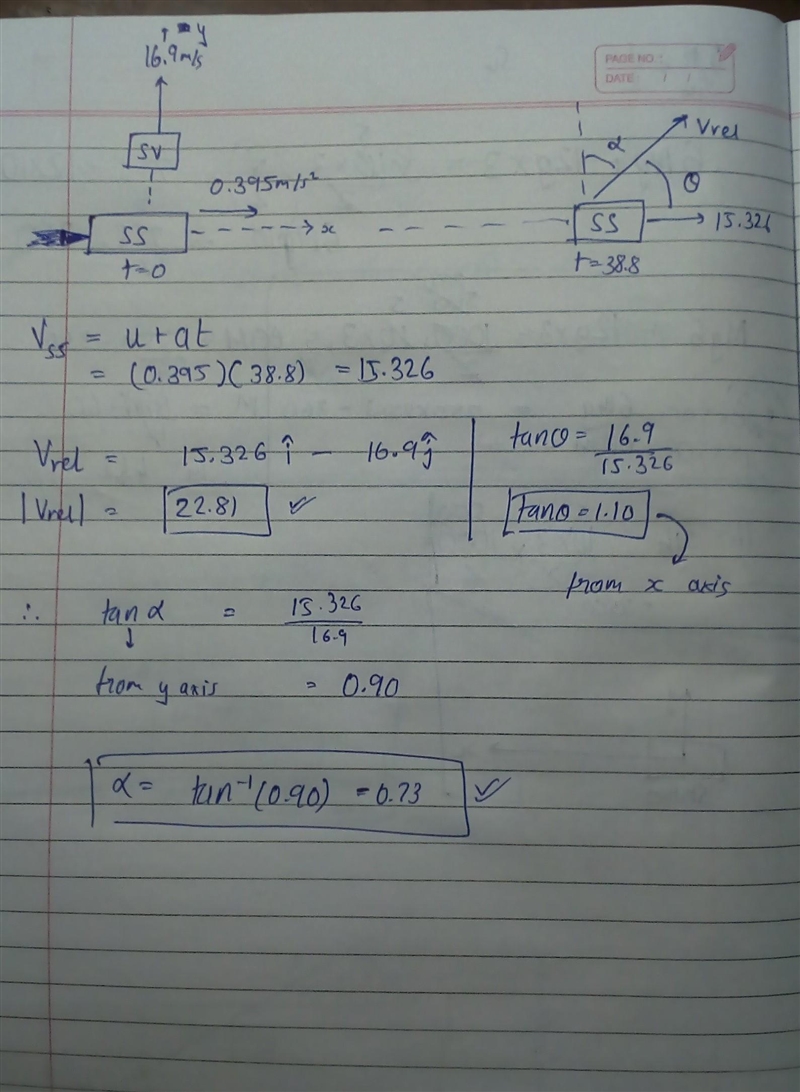 ↑ y
16.9 m/s
PAGE NO.:
DATE: / /
SV
0.395 m/s²
α
Vrel
θ
SS
x
SS
15.326
t=0
t=38.8
V_SS = u + at
= (0.395)(38.8) = 15.326
Vrel = 15.326 î − 16.9 ĵ
|Vrel| = 22.81 ✓
tanθ = 16.9/15.326
tanθ = 1.10
from x axis
∴ tan α = 15.326/16.9
from y axis = 0.90
α = tan⁻¹(0.90) = 0.73 ✓